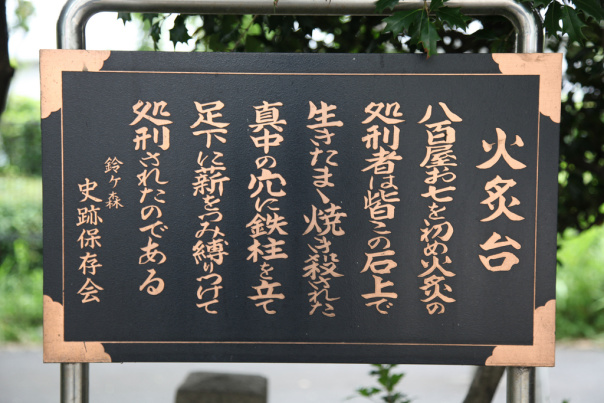 火炙台
八百屋お七を初め火炙の
処刑者は皆この石上で
生きたまゝ焼き殺された
真中の穴に鉄柱を立て
足下に薪をつみ縛りつけて
処刑されたのである
鈴ヶ森
史跡保存会